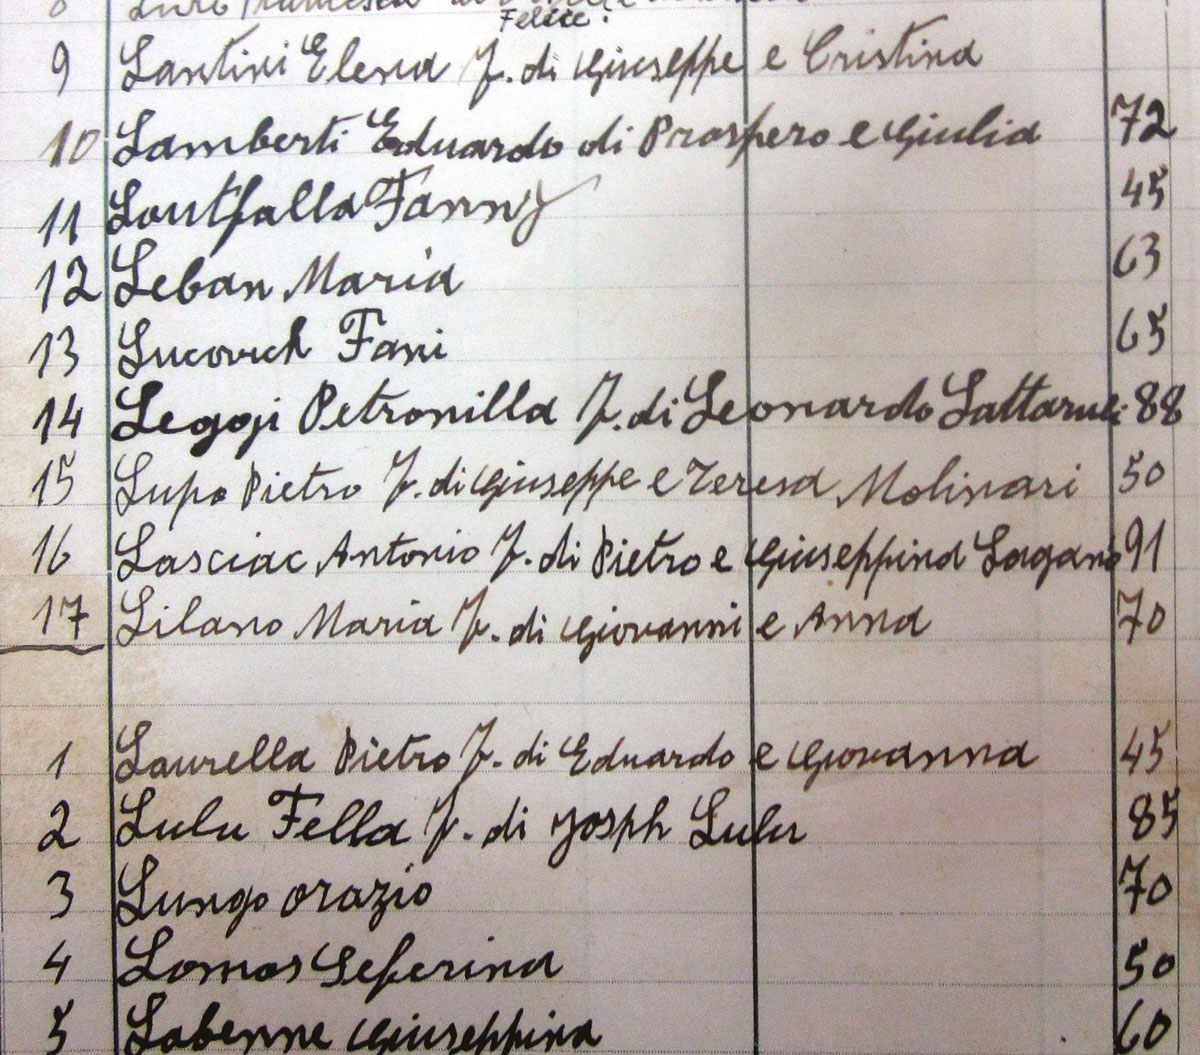 8
Felice.
9 Lantini Elena f. di Giuseppe e Cristina
10 Lamberti Eduardo di Prospero e Giulia 72
11 Loutfalla Fanny 45
12 Leban Maria 63
13 Lucovich Fani 65
14 Leggi Petronilla f. di Leonardo 88
15 Lupo Pietro f. di Giuseppe e Teresa Molinari 50
16 Lasciac Antonio f. di Pietro e Giuseppina Laganà 91
17 Lilano Maria f. di Giovanni e Anna 70
1 Laurella Pietro f. di Eduardo e Giovanna 45
2 Lulu Fella f. di Josph Lulu 85
3 Lungo Orazio 70
4 Lomos Seferina 50
5 Labenne Giuseppina 60